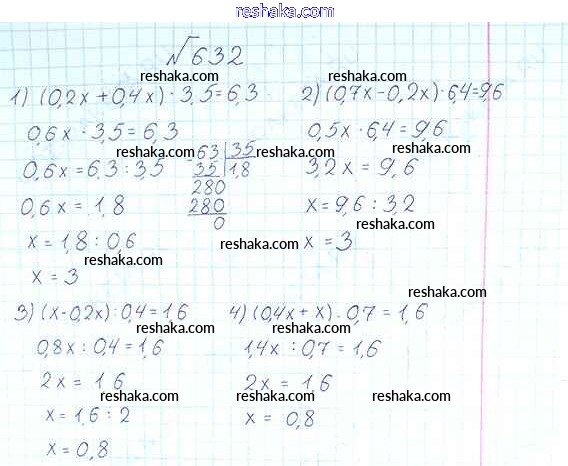 reshaka.com
№632
reshaka.com reshaka.com
1) (0,2x + 0,4x) · 3,5 = 6,3 2) (0,7x - 0,2x) · 6,4 = 9,6
reshaka.com
0,6x · 3,5 = 6,3 0,5x · 6,4 = 9,6
reshaka.com reshaka.com
0,6x = 6,3 : 3,5 63 | 35 3,2x = 9,6
35 | 1,8
280
0,6x = 1,8 280 x = 9,6 : 3,2
0
x = 1,8 : 0,6 reshaka.com x = 3
reshaka.com
x = 3
reshaka.com
3) (x - 0,2x) : 0,4 = 1,6 4) (0,4x + x) : 0,7 = 1,6
reshaka.com reshaka.com
0,8x : 0,4 = 1,6 1,4x : 0,7 = 1,6
reshaka.com
2x = 1,6 2x = 1,6
reshaka.com reshaka.com
x = 1,6 : 2 x = 0,8
reshaka.com
x = 0,8
reshaka.com